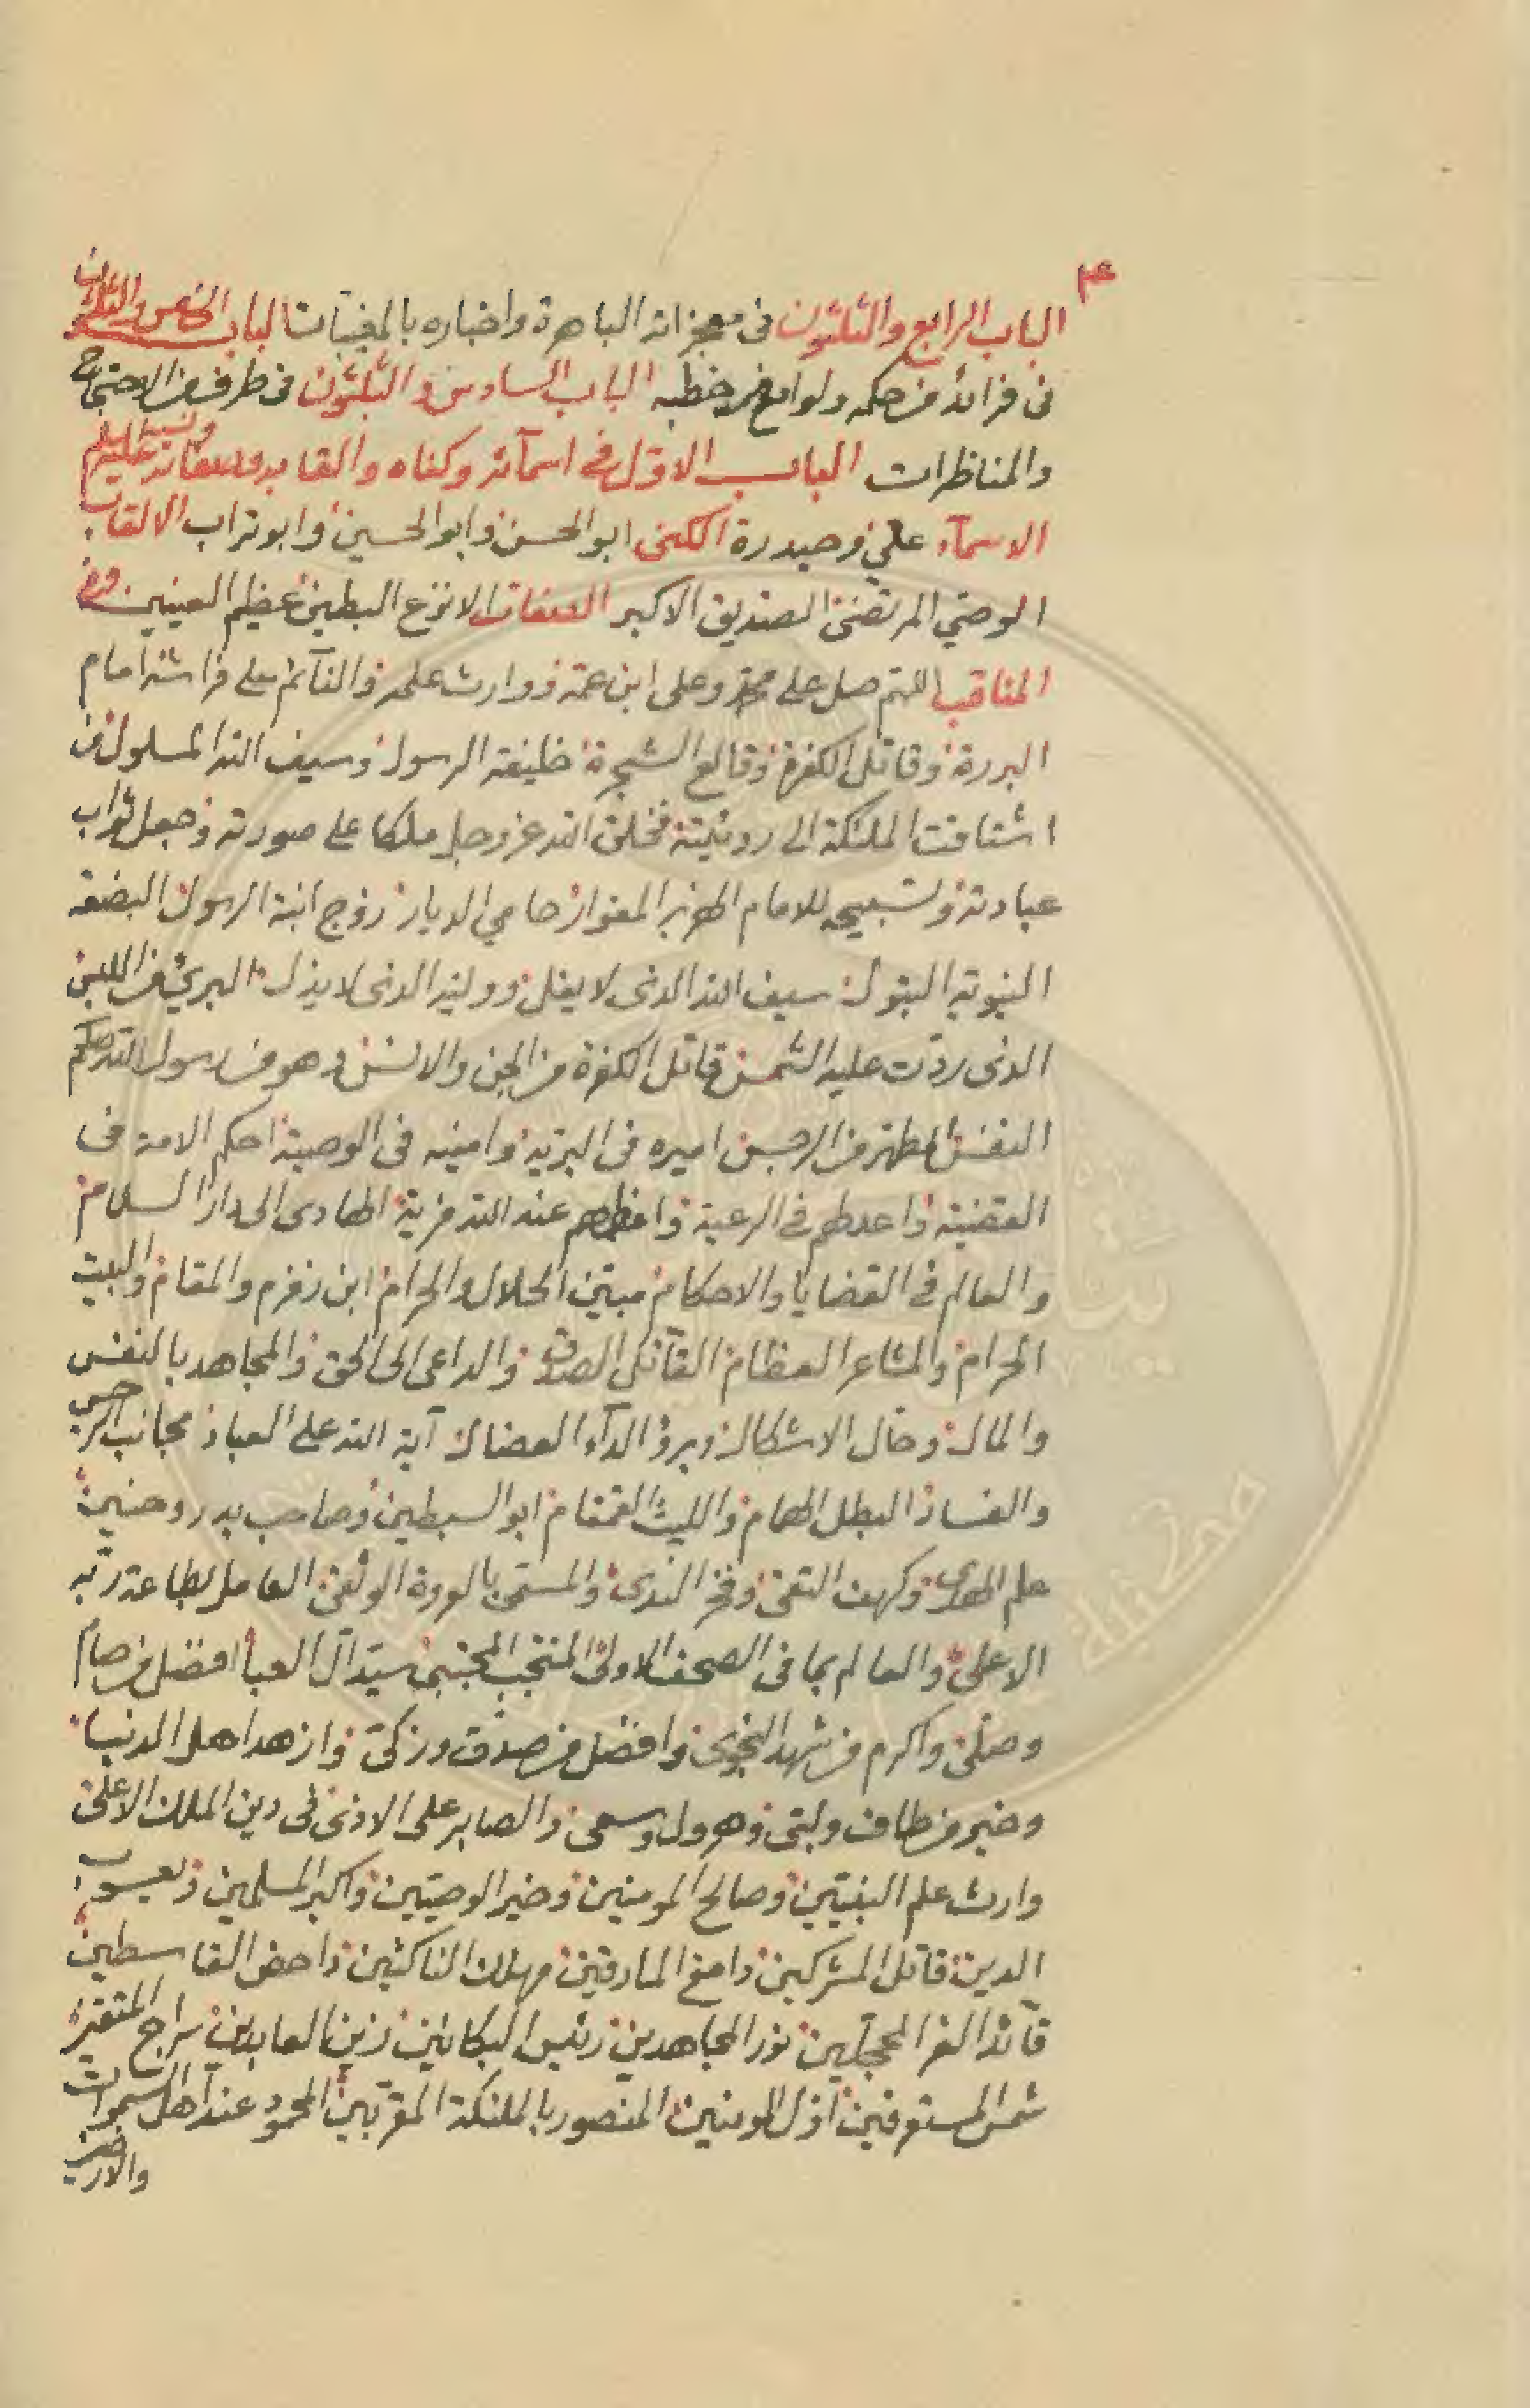 الباب الرابع والثلثون فى معجزاته الباهرة واخباره بالمغيبات الباب الخامس والثلثون
فى فرائد من حكمه ولوامع من خطبه الباب السادس والثلثون فى طرف من الاحتجاج
والمناظرات الباب الاول فى اسمآئه وكناه والقابه وصفاته عليه
الاسمآء علي وحيدرة الكنى ابو الحسن وابو الحسين وابو تراب الالقاب
الوصي المرتضى الصديق الاكبر الصفات الانزع البطين عظيم العينين وفى
المناقب اللهم صل على محمد وعلى ابن عمه ووارث علمه والنآئم على فراشه امام
البررة وقاتل الكفرة وقالع الشجرة خليفة الرسول وسيف الله المسلول من
اشتاقت الملئكة الى رويته فخلق الله عز وجل ملكا على صورته وجعل ثواب
عبادته وتسبيحه للامام الهزبر المغوار حامي الديار زوج ابنة الرسول البضعة
النبوية البتول سيف الله الذى لا يفل ووليه الذى لا يذل البرئ من اللبس
الذى ردت عليه الشمس قاتل الكفرة من الجن والانس وهو من رسول الله
النفس المطهر من الرجس اميره فى البرية وامينه فى الوصية احكم الامة فى
القضية واعدلهم فى الرعية واعظمهم عند الله مزية الهادى الى دار السلام
والعالم فى القضايا والاحكام مبين الحلال والحرام ابن زمزم والمقام والبيت
الحرام والمشاعر العظام القآئل الصدق والداعى الى الحق والمجاهد بالنفس
والمال وحال الاشكال وبرؤ الدآء العضال آية الله على العباد مجانب الرجس
والفساد البطل الهمام والليث القمقام ابو السبطين وصاحب بدر وحنين
علم الهدى وكهف التقى وفخر الندى والمستمى بالعروة الوثقى العامل بطاعة ربه
الاعلى والعالم بما فى الصحف الاولى المنتجب المجتبى سيد آل العبا افضل من صام
وصلى واكرم من شهد النجوى وافضل من صدق وزكى وازهد اهل الدنيا
وخير من طاف ولبى وهرول وسعى والصابر على الاذى فى دين الملك الاعلى
وارث علم النبيين وصالح المومنين وخير الوصيين واكبر المسلمين ويعسوب
الدين قاتل المشركين دامغ المارقين مهلك الناكثين داحض القاسطين
قآئد الغر المحجلين نور المجاهدين رئيس البكائين زين العابدين سراج المتقين
شمس المستغفرين اول المومنين المنصور بالملئكة المقربين المحمود عند اهل السموات
والارضين